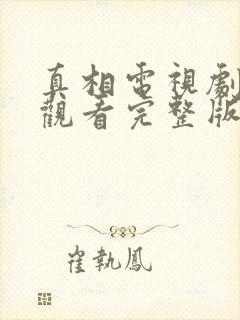 真相電視劇
觀看完整版
崔執鳳